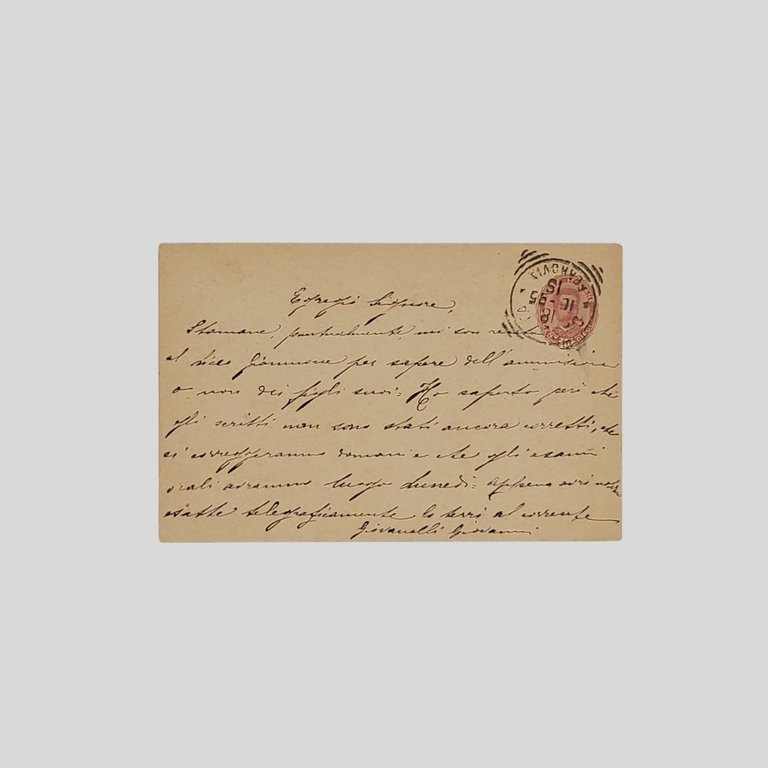 Egregio Signore,
Stamane, puntualmente, mi son
al liceo Giannone per sapere dell'ammissione
o non dei figli suoi: Ho saputo però che
gli scritti non sono stati ancora corretti, che
si correggeranno domani e che gli esami
orali avranno luogo Lunedì: Appena avrò notizie
esatte telegraficamente la terrò al corrente
Giovanelli Giovanni